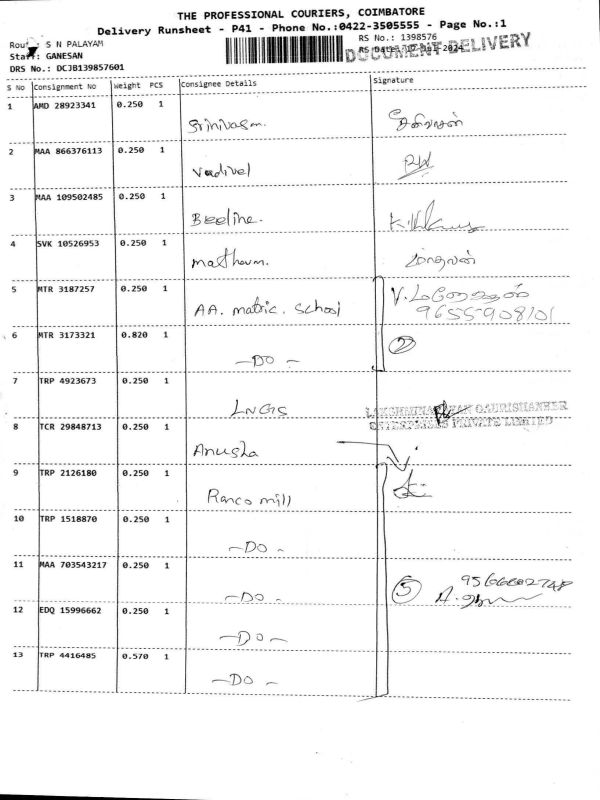 THE PROFESSIONAL COURIERS, COIMBATORE
Delivery Runsheet - P41 - Phone No.:0422-3505555 - Page No.:1
Route: S N PALAYAM
RS No.: 1398576
Staff: GANESAN
RS Date:
DOCUMENT DELIVERY
DRS No.: DCJB139857601
S No Consignment No Weight PCS Consignee Details Signature
1 AMD 28923341 0.250 1
Srinivasan. சீனிவாசன்
2 MAA 866376113 0.250 1
Vadivel
3 MAA 109502485 0.250 1
Beeline.
4 SVK 10526953 0.250 1
மாதவன்
5 MTR 3187257 0.250 1
AA. matric. School
9655908101
6 MTR 3173321 0.820 1
-DO - 2
7 TRP 4923673 0.250 1
LNGS
ENTERPRISES PRIVATE LIMITED
8 TCR 29848713 0.250 1
Anusha
9 TRP 2126180 0.250 1
Ranco mill
10 TRP 1518870 0.250 1
-DO -
11 MAA 703543217 0.250 1
-DO - 5
12 EDQ 15996662 0.250 1
-DO -
13 TRP 4416485 0.570 1
-DO -